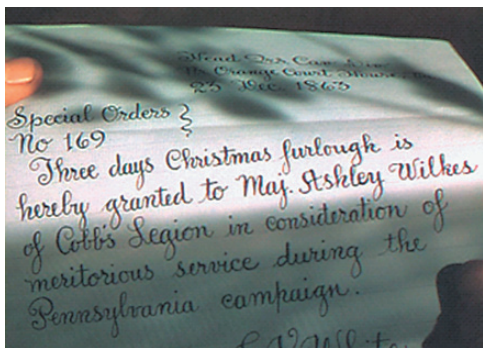 Head Qrs Cav
Nr Orange Court House
23 Dec. 1863
Special Orders
No 169
Three days Christmas furlough is
hereby granted to Maj. Ashley Wilkes
of Cobb's Legion in consideration of
meritorious service during the
Pennsylvania campaign.